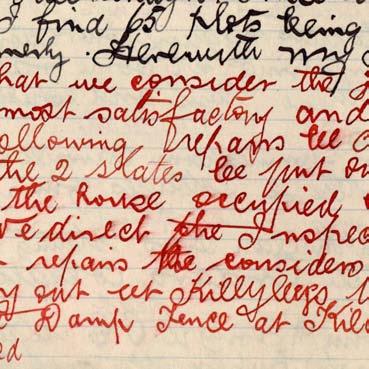 I find 65 plots being
Herewith my
hat we consider the
most satisfactory and
ollowing repairs be
the 2 slates be put on
the house occupied
We direct the Inspec
repairs the considers
out at Killybegs
Damp Fence at Kil
ed